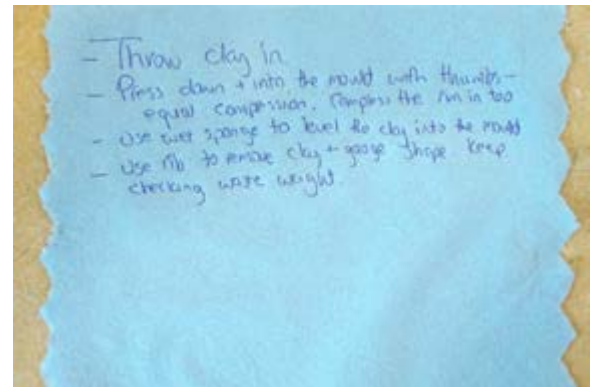 - Throw clay in
- Press down + into the mould with thumbs -
equal compression. Compress the rim in too
- Use wet sponge to level the clay into the mould
- Use rib to remove clay + gauge shape keep
checking ware weight.